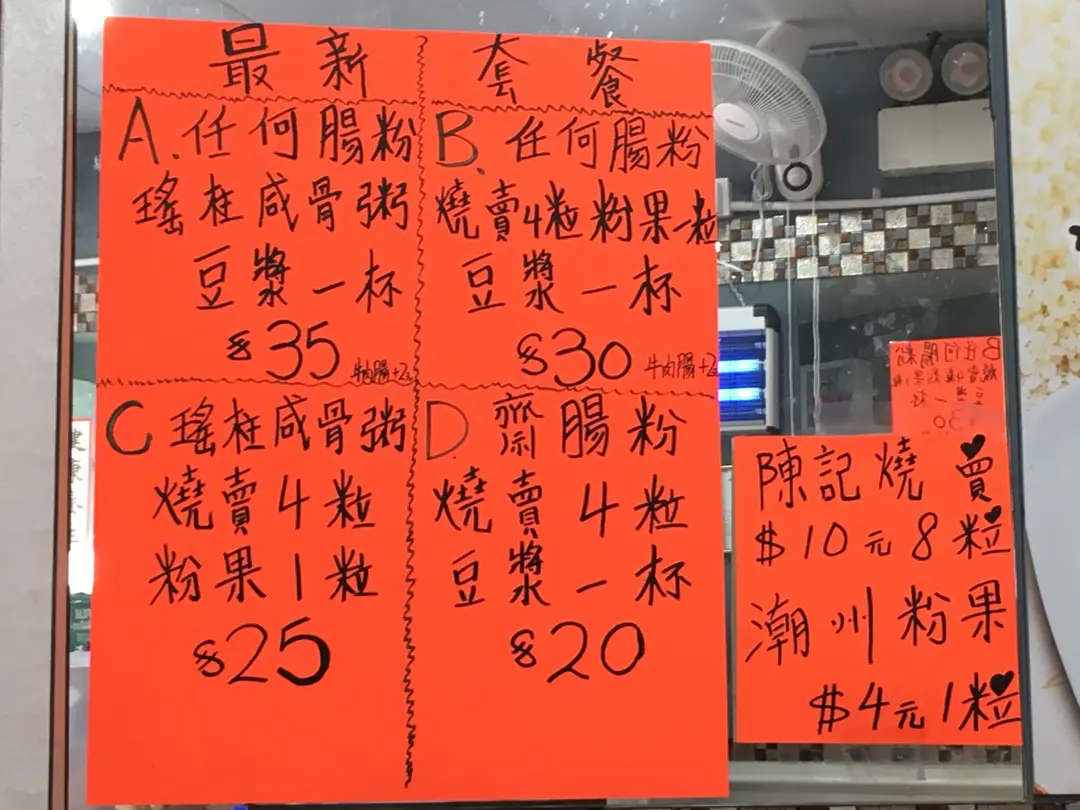 最新 套餐
A.任何腸粉
瑤柱咸骨粥
豆漿一杯
$35
牛肉腸+2
B.任何腸粉
燒賣4粒粉果一粒
豆漿一杯
$30
牛肉腸+2
C 瑤柱咸骨粥
燒賣4粒
粉果1粒
$25
D.齋腸粉
燒賣4粒
豆漿一杯
$20
陳記燒賣
$10元8粒
潮州粉果
$4元1粒
B任何腸粉
豆漿一杯
$30
健康養生